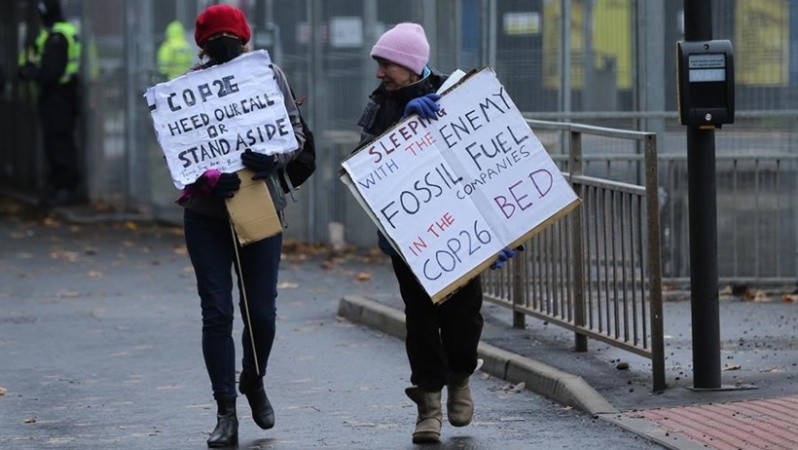 COP26
HEED OUR CALL
OR
STAND ASIDE
SLEEPING
WITH THE ENEMY
FOSSIL FUEL
COMPANIES
IN THE
COP26 BED